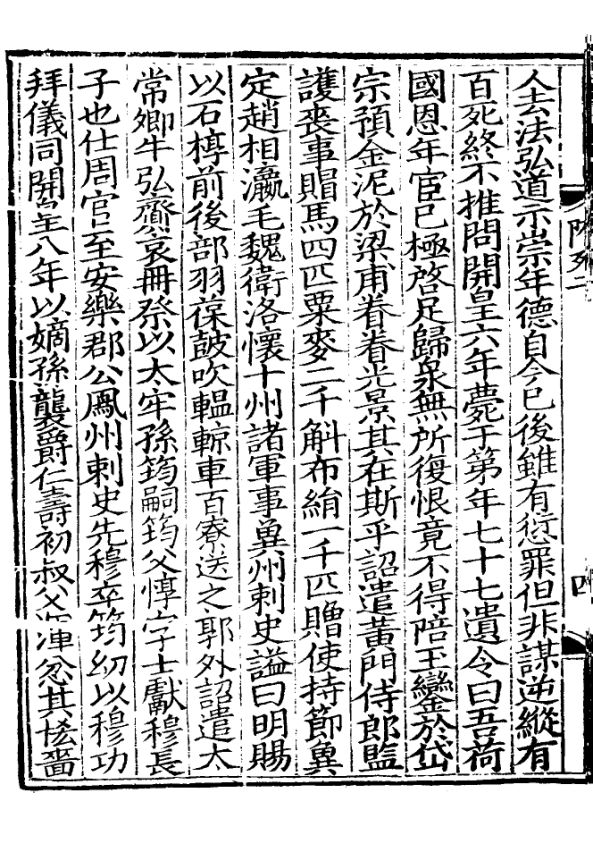 人去法弘道示崇年德自今已後雖有愆罪但非謀逆縱有
百死終不推問開皇六年薨于第年七十七遺令曰吾荷
國恩年宦已極啓足歸泉無所復恨竟不得陪玉鑾於岱
宗預金泥於梁甫眷眷光景其在斯乎詔遣黃門侍郎監
護喪事賵馬四匹粟麥二千斛布絹一千匹贈使持節冀
定趙相瀛毛魏衛洛懷十州諸軍事冀州刺史謚曰明賜
以石槨前後部羽葆鼓吹輼輬車百寮送之郭外詔遣太
常卿牛弘齎哀冊祭以太牢孫筠嗣筠父惇字士獻穆長
子也仕周官至安樂郡公鳳州刺史先穆卒筠幼以穆功
拜儀同開皇八年以嫡孫襲爵仁壽初叔父渾忿其恡嗇
四